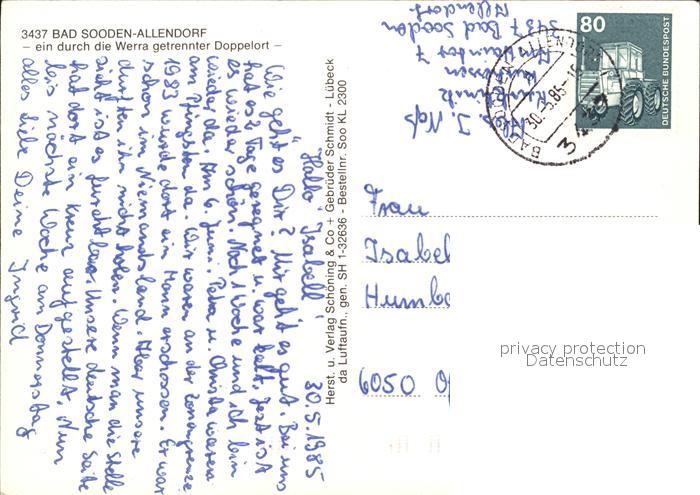 3437 BAD SOODEN-ALLENDORF
– ein durch die Werra getrennter Doppelort –
30.5.1985
"Hallo Isabell!"
Wie geht es Dir? Mir geht es gut. Bei uns
hat es 2 Tage geregnet u. war kalt. Jetzt ist
es wieder schön. Noch 1 Woche und ich bin
wieder da. Am 6. Juni. Petra u. Christa waren
an Pfingsten da. Wir waren an der Zonengrenze
1983 wurde dort ein Mann erschossen. Er war
schon im Niemandsland. Aber unsere
durften ihn nicht holen. Wenn man die Stelle
sieht ist es furchtbar. Unsere deutsche Seite
hat dort ein Kreuz aufgestellt. Nun
bis nächste Woche am Donnerstag
alles liebe Deine Ingrid
Herst. u. Verlag Schöning & Co + Gebrüder Schmidt - Lübeck
da Luftaufn., gen. SH 1-32636 - Bestellnr. Soo KL 2300
Abs. I. Naß
Am Haintor 7
3437 Bad Sooden
Allendorf
80
DEUTSCHE BUNDESPOST
BAD SOODEN-ALLENDORF
30.-5.85
Frau
Isabel
Humbo
6050 O
privacy protection
Datenschutz